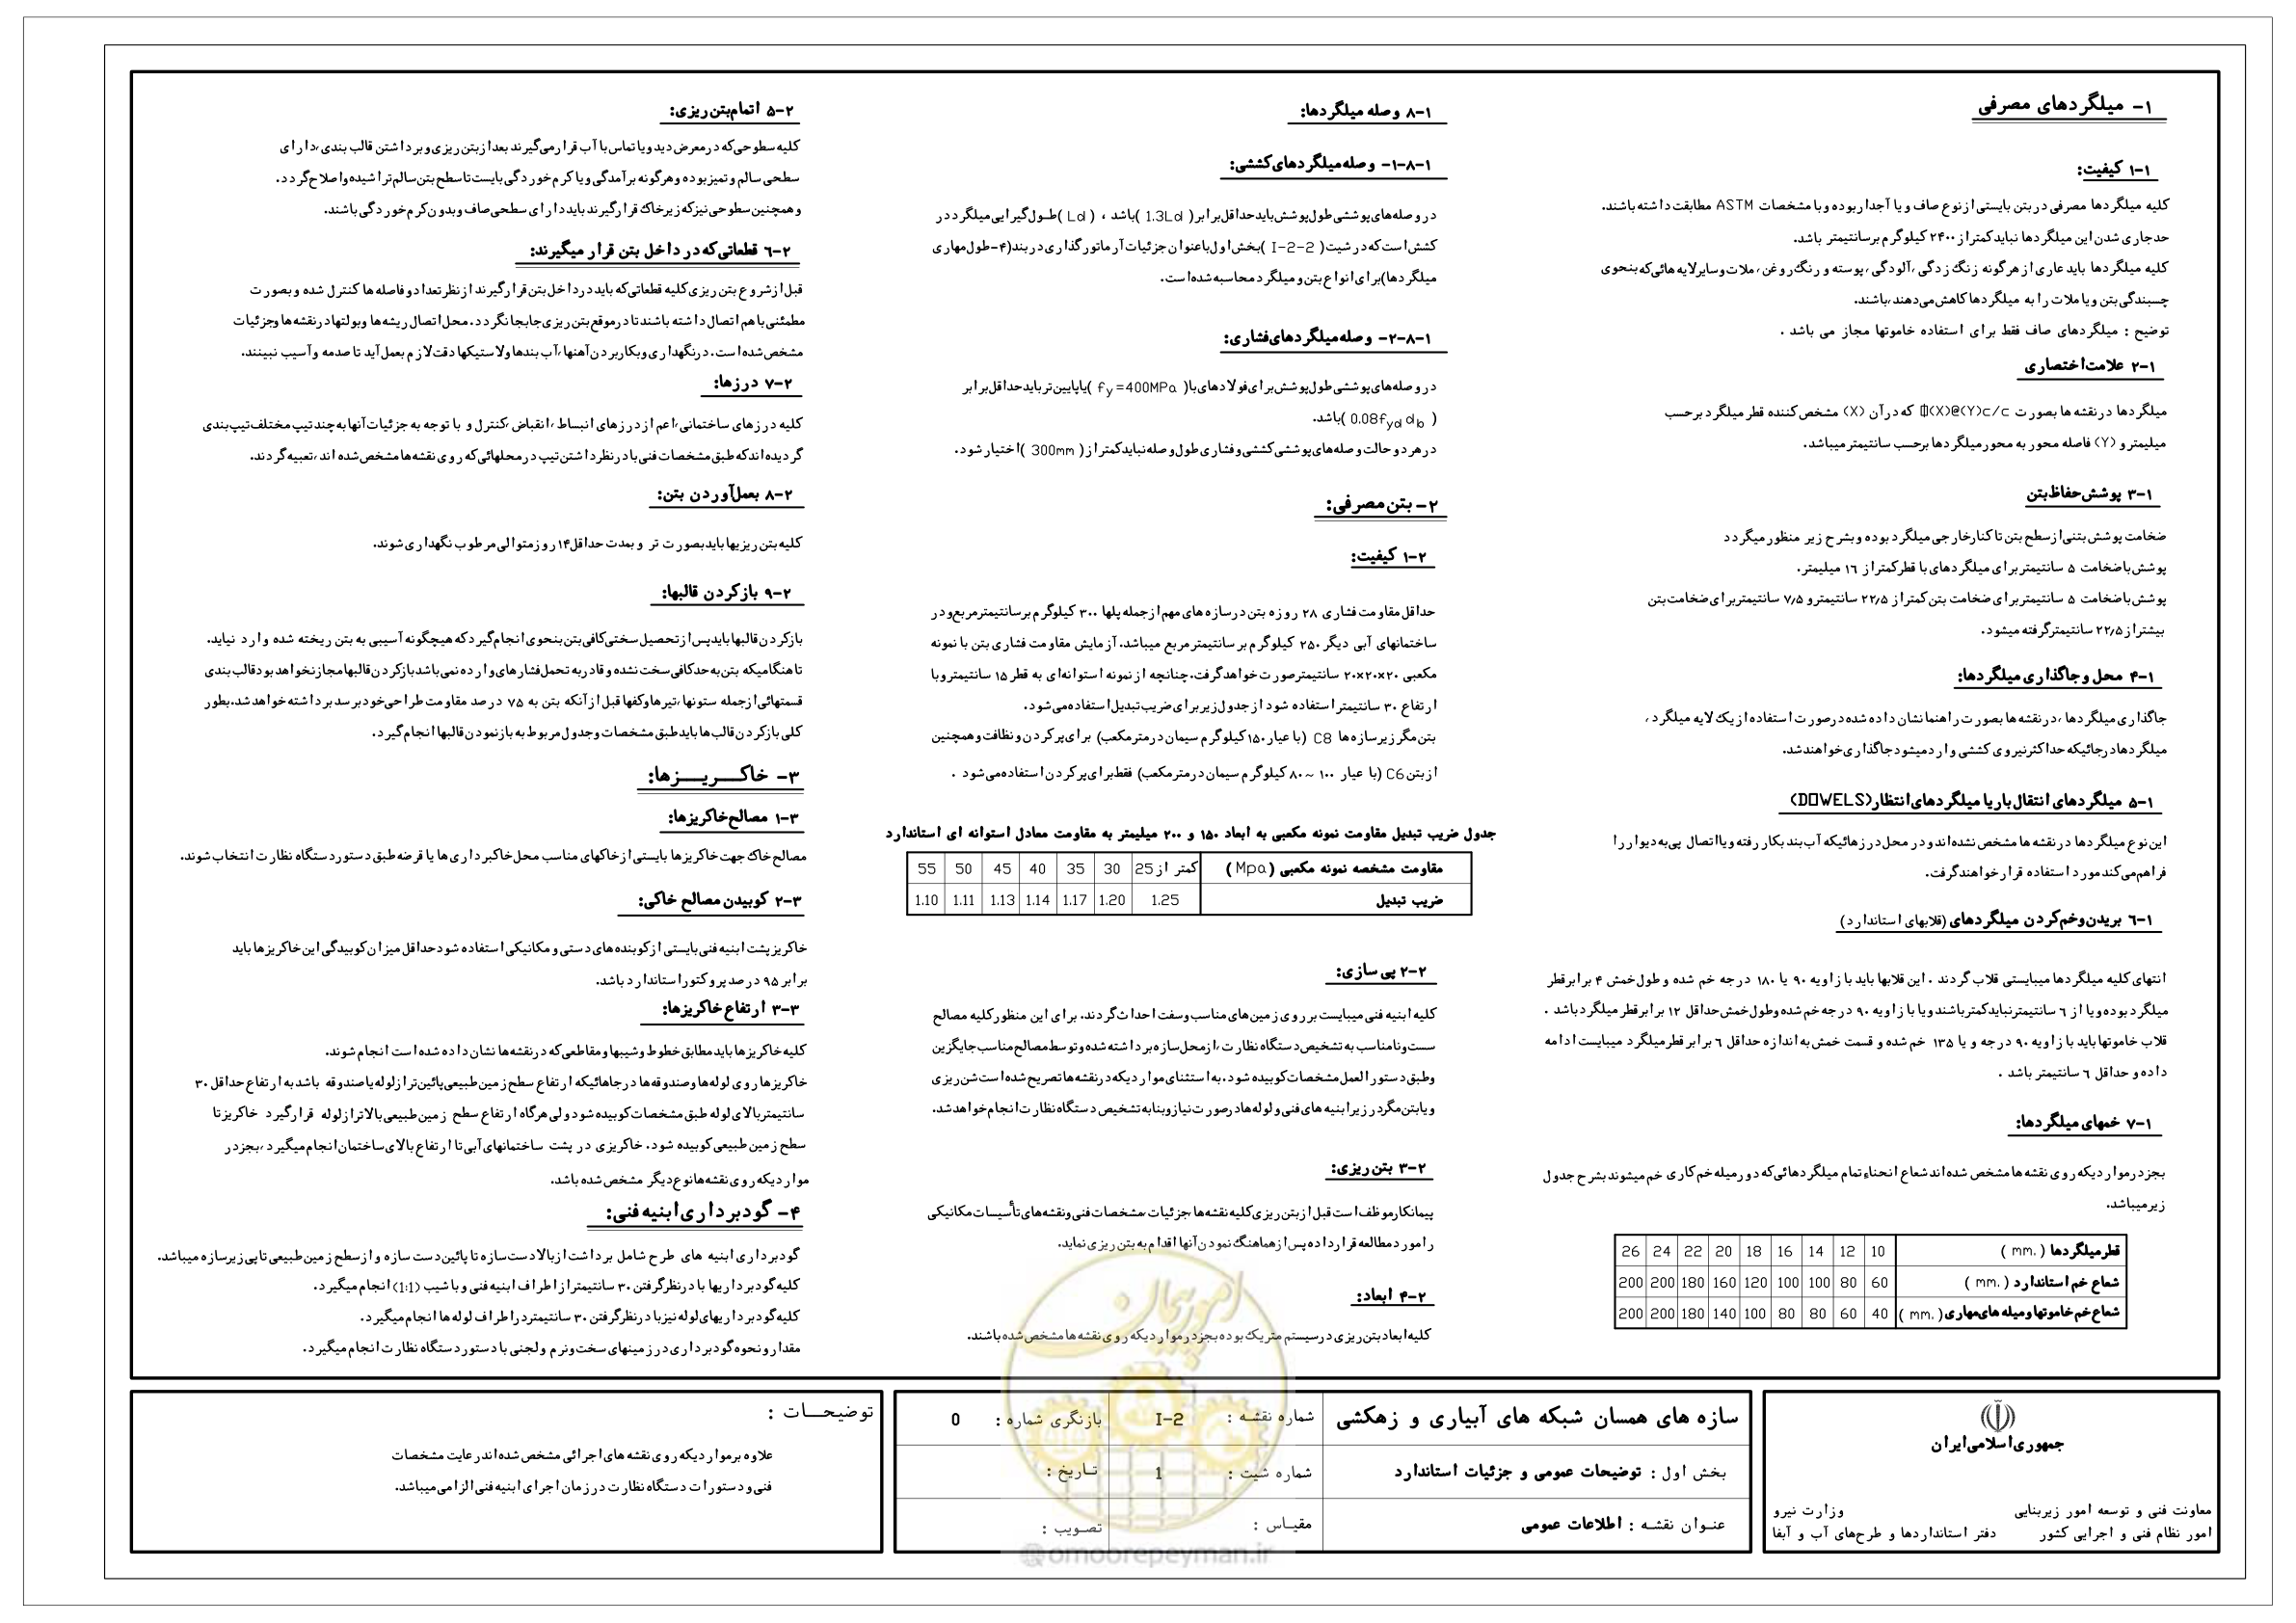 ۱- میلگردهای مصرفی
۱-۱ کیفیت:
کلیه میلگردها مصرفی در بتن بایستی از نوع صاف و یا آجدار بوده و با مشخصات ASTM مطابقت داشته باشند.
حدجاری شدن این میلگردها نباید کمتر از ۲۴۰۰ کیلوگرم بر سانتیمتر باشد.
کلیه میلگردها باید عاری از هرگونه زنگ زدگی ،آلودگی ، پوسته و رنگ روغن ، ملات و سایر لایه هائی که بنحوی
چسبندگی بتن و یا ملات را به میلگردها کاهش می‌دهند،باشند.
توضیح : میلگردهای صاف فقط برای استفاده خاموتها مجاز می باشد .
۲-۱ علامت اختصاری
میلگردها در نقشه ها بصورت Φ(X)@(Y)c/c که در آن (X) مشخص کننده قطر میلگرد برحسب
میلیمتر و (Y) فاصله محور به محور میلگردها برحسب سانتیمتر میباشد.
۳-۱ پوشش حفاظ بتن
ضخامت پوشش بتنی از سطح بتن تا کنار خارجی میلگرد بوده و بشرح زیر منظور میگردد
پوشش با ضخامت ۵ سانتیمتر برای میلگردهای با قطر کمتر از ۱۶ میلیمتر.
پوشش با ضخامت ۵ سانتیمتر برای ضخامت بتن کمتر از ۲۲٫۵ سانتیمتر و ۷٫۵ سانتیمتر برای ضخامت بتن
بیشتر از ۲۲٫۵ سانتیمتر گرفته میشود.
۴-۱ محل و جاگذاری میلگردها:
جاگذاری میلگردها ،در نقشه ها بصورت راهنما نشان داده شده درصورت استفاده از یک لایه میلگرد ،
میلگردها درجائیکه حداکثر نیروی کششی وارد میشود جاگذاری خواهند شد.
۵-۱ میلگردهای انتقال بار یا میلگردهای انتظار(DOWELS)
این نوع میلگردها در نقشه ها مشخص نشده‌اند و در محل درزهائیکه آب بند بکار رفته و یا اتصال پی به دیوار را
فراهم می کند مورد استفاده قرار خواهند گرفت.
۶-۱ بریدن و خم کردن میلگردهای (قلابهای استاندارد)
انتهای کلیه میلگردها میبایستی قلاب گردند . این قلابها باید با زاویه ۹۰ یا ۱۸۰ درجه خم شده و طول خمش ۴ برابر قطر
میلگرد بوده و یا از ۶ سانتیمتر نباید کمتر باشند و یا با زاویه ۹۰ درجه خم شده و طول خمش حداقل ۱۲ برابر قطر میلگرد باشد .
قلاب خاموتها باید با زاویه ۹۰ درجه و یا ۱۳۵ خم شده و قسمت خمش به اندازه حداقل ۶ برابر قطر میلگرد میبایست ادامه
داده و حداقل ۶ سانتیمتر باشد .
۷-۱ خمهای میلگردها:
بجز در مواردیکه روی نقشه ها مشخص شده اند شعاع انحناء تمام میلگردهائی که دور میله خم کاری خم میشوند بشرح جدول
زیر میباشد.
قطر میلگردها ( mm. ) 10 12 14 16 18 20 22 24 26
شعاع خم استاندارد ( mm. ) 60 80 100 100 120 160 180 200 200
شعاع خم خاموتها و میله های مهاری ( mm. ) 40 60 80 80 100 140 180 200 200
۸-۱ وصله میلگردها:
۱-۸-۱- وصله میلگردهای کششی:
در وصله‌های پوششی طول پوشش باید حداقل برابر ( 1.3Ld )باشد ، ( Ld )طول گیرایی میلگرد در
کشش است که در شیت ( I-2-2 )بخش اول با عنوان جزئیات آرماتورگذاری در بند(۴-طول مهاری
میلگردها)برای انواع بتن و میلگرد محاسبه شده است.
۱-۸-۲- وصله میلگردهای فشاری:
در وصله‌های پوششی طول پوشش برای فولادهای با ( fy=400MPa )یا پایین تر باید حداقل برابر
( 0.08fyd db )باشد.
در هر دو حالت وصله‌های پوششی کششی و فشاری طول وصله نباید کمتر از ( 300mm )اختیار شود.
۲- بتن مصرفی:
۱-۲ کیفیت:
حداقل مقاومت فشاری ۲۸ روزه بتن در سازه های مهم از جمله پلها ۳۰۰ کیلوگرم بر سانتیمتر مربع و در
ساختمانهای آبی دیگر ۲۵۰ کیلوگرم بر سانتیمتر مربع میباشد. آزمایش مقاومت فشاری بتن با نمونه
مکعبی ۲۰×۲۰×۲۰ سانتیمتر صورت خواهد گرفت.چنانچه از نمونه استوانه‌ای به قطر ۱۵ سانتیمتر و با
ارتفاع ۳۰ سانتیمتر استفاده شود از جدول زیر برای ضریب تبدیل استفاده می‌شود.
بتن مگر زیرسازه‌ها C8 (با عیار ۱۵۰ کیلوگرم سیمان در متر مکعب) برای پر کردن و نظافت و همچنین
از بتن C6 (با عیار ۱۰۰ ~ ۸۰ کیلوگرم سیمان در متر مکعب) فقط برای پر کردن استفاده می شود .
جدول ضریب تبدیل مقاومت نمونه مکعبی به ابعاد ۱۵۰ و ۲۰۰ میلیمتر به مقاومت معادل استوانه ای استاندارد
مقاومت مشخصه نمونه مکعبی ( Mpa ) کمتر از 25 30 35 40 45 50 55
ضریب تبدیل 1.25 1.20 1.17 1.14 1.13 1.11 1.10
۲-۲ پی سازی:
کلیه ابنیه فنی میبایست بر روی زمین های مناسب و سفت احداث گردند. برای این منظور کلیه مصالح
سست و نامناسب به تشخیص دستگاه نظارت ،از محل سازه برداشته شده و توسط مصالح مناسب جایگزین
و طبق دستورالعمل مشخصات کوبیده شود. به استثنای مواردیکه در نقشه ها تصریح شده است شن ریزی
و یا بتن مگر در زیر ابنیه های فنی و لوله ها درصورت نیاز و بنا به تشخیص دستگاه نظارت انجام خواهد شد.
۳-۲ بتن ریزی:
پیمانکار موظف است قبل از بتن ریزی کلیه نقشه ها ،جزئیات ،مشخصات فنی و نقشه های تأسیسات مکانیکی
را مورد مطالعه قرار داده پس از هماهنگ نمودن آنها اقدام به بتن ریزی نماید.
۴-۲ ابعاد:
کلیه ابعاد بتن ریزی در سیستم متریک بوده بجز در مواردیکه روی نقشه ها مشخص شده باشند.
۵-۲ اتمام بتن ریزی:
کلیه سطوحی که در معرض دید و یا تماس با آب قرار می گیرند بعد از بتن ریزی و برداشتن قالب بندی ،دارای
سطحی سالم و تمیز بوده و هرگونه برآمدگی و یا کرم خوردگی بایست تا سطح بتن سالم تراشیده و اصلاح گردد.
و همچنین سطوحی نیز که زیر خاک قرار گیرند باید دارای سطحی صاف و بدون کرم خوردگی باشند.
۶-۲ قطعاتی که در داخل بتن قرار میگیرند:
قبل از شروع بتن ریزی کلیه قطعاتی که باید در داخل بتن قرار گیرند از نظر تعداد و فاصله ها کنترل شده و بصورت
مطمئنی با هم اتصال داشته باشند تا در موقع بتن ریزی جابجا نگردد. محل اتصال ریشه ها وبولتها در نقشه ها و جزئیات
مشخص شده است. در نگهداری و بکار بردن آهنها ،آب بندها و لاستیکها دقت لازم بعمل آید تا صدمه و آسیب نبینند.
۷-۲ درزها:
کلیه درزهای ساختمانی،اعم از درزهای انبساط ،انقباض ،کنترل و با توجه به جزئیات آنها به چند تیپ مختلف تیپ بندی
گردیده اند که طبق مشخصات فنی با در نظر داشتن تیپ در محلهائی که روی نقشه ها مشخص شده اند ،تعبیه گردند.
۸-۲ بعمل‌آوردن بتن:
کلیه بتن ریزیها باید بصورت تر و بمدت حداقل ۱۴ روز متوالی مرطوب نگهداری شوند.
۹-۲ باز کردن قالبها:
باز کردن قالبها باید پس از تحصیل سختی کافی بتن بنحوی انجام گیرد که هیچگونه آسیبی به بتن ریخته شده وارد نیاید.
تا هنگامیکه بتن به حد کافی سخت نشده و قادر به تحمل فشارهای وارده نمی باشد باز کردن قالبها مجاز نخواهد بود قالب بندی
قسمتهائی از جمله ستونها ،تیرها و کفها قبل از آنکه بتن به ۷۵ درصد مقاومت طراحی خود برسد برداشته خواهد شد.بطور
کلی باز کردن قالب ها باید طبق مشخصات و جدول مربوط به باز نمودن قالبها انجام گیرد.
۳- خاکــریــزها:
۱-۳ مصالح خاکریزها:
مصالح خاک جهت خاکریزها بایستی از خاکهای مناسب محل خاکبرداری ها یا قرضه طبق دستور دستگاه نظارت انتخاب شوند.
۲-۳ کوبیدن مصالح خاکی:
خاکریز پشت ابنیه فنی بایستی از کوبنده های دستی و مکانیکی استفاده شود حداقل میزان کوبیدگی این خاکریزها باید
برابر ۹۵ درصد پروکتور استاندارد باشد.
۳-۳ ارتفاع خاکریزها:
کلیه خاکریزها باید مطابق خطوط و شیبها و مقاطعی که در نقشه ها نشان داده شده است انجام شوند.
خاکریزها روی لوله ها و صندوقه ها در جاهائیکه ارتفاع سطح زمین طبیعی پائین تر از لوله یا صندوقه باشد به ارتفاع حداقل ۳۰
سانتیمتر بالای لوله طبق مشخصات کوبیده شود ولی هرگاه ارتفاع سطح زمین طبیعی بالاتر از لوله قرار گیرد خاکریز تا
سطح زمین طبیعی کوبیده شود. خاکریزی در پشت ساختمانهای آبی تا ارتفاع بالای ساختمان انجام میگیرد ،بجز در
مواردیکه روی نقشه ها نوع دیگر مشخص شده باشد.
۴- گودبرداری ابنیه فنی:
گودبرداری ابنیه های طرح شامل برداشت از بالادست سازه تا پائین دست سازه و از سطح زمین طبیعی تا پی زیر سازه میباشد.
کلیه گودبرداریها با در نظر گرفتن ۳۰ سانتیمتر از اطراف ابنیه فنی و با شیب (1:1) انجام میگیرد.
کلیه گودبرداریهای لوله نیز با در نظر گرفتن ۳۰ سانتیمتر در اطراف لوله ها انجام میگیرد.
مقدار و نحوه گودبرداری در زمینهای سخت و نرم و لجنی با دستور دستگاه نظارت انجام میگیرد.
جمهوری اسلامی ایران
معاونت فنی و توسعه امور زیربنایی
امور نظام فنی و اجرایی کشور
وزارت نیرو
دفتر استانداردها و طرح‌های آب و آبفا
سازه های همسان شبکه های آبیاری و زهکشی
بخش اول : توضیحات عمومی و جزئیات استاندارد
عنـوان نقشـه : اطلاعات عمومی
شماره نقشـه : I-2
شماره شیت : 1
مقیـاس :
بازنگری شماره : 0
تـاریخ :
تصـویب :
توضیحـــات :
علاوه بر مواردیکه روی نقشه های اجرائی مشخص شده اند رعایت مشخصات
فنی و دستورات دستگاه نظارت در زمان اجرای ابنیه فنی الزامی میباشد.
امور پیمان
@omoorepeyman.ir